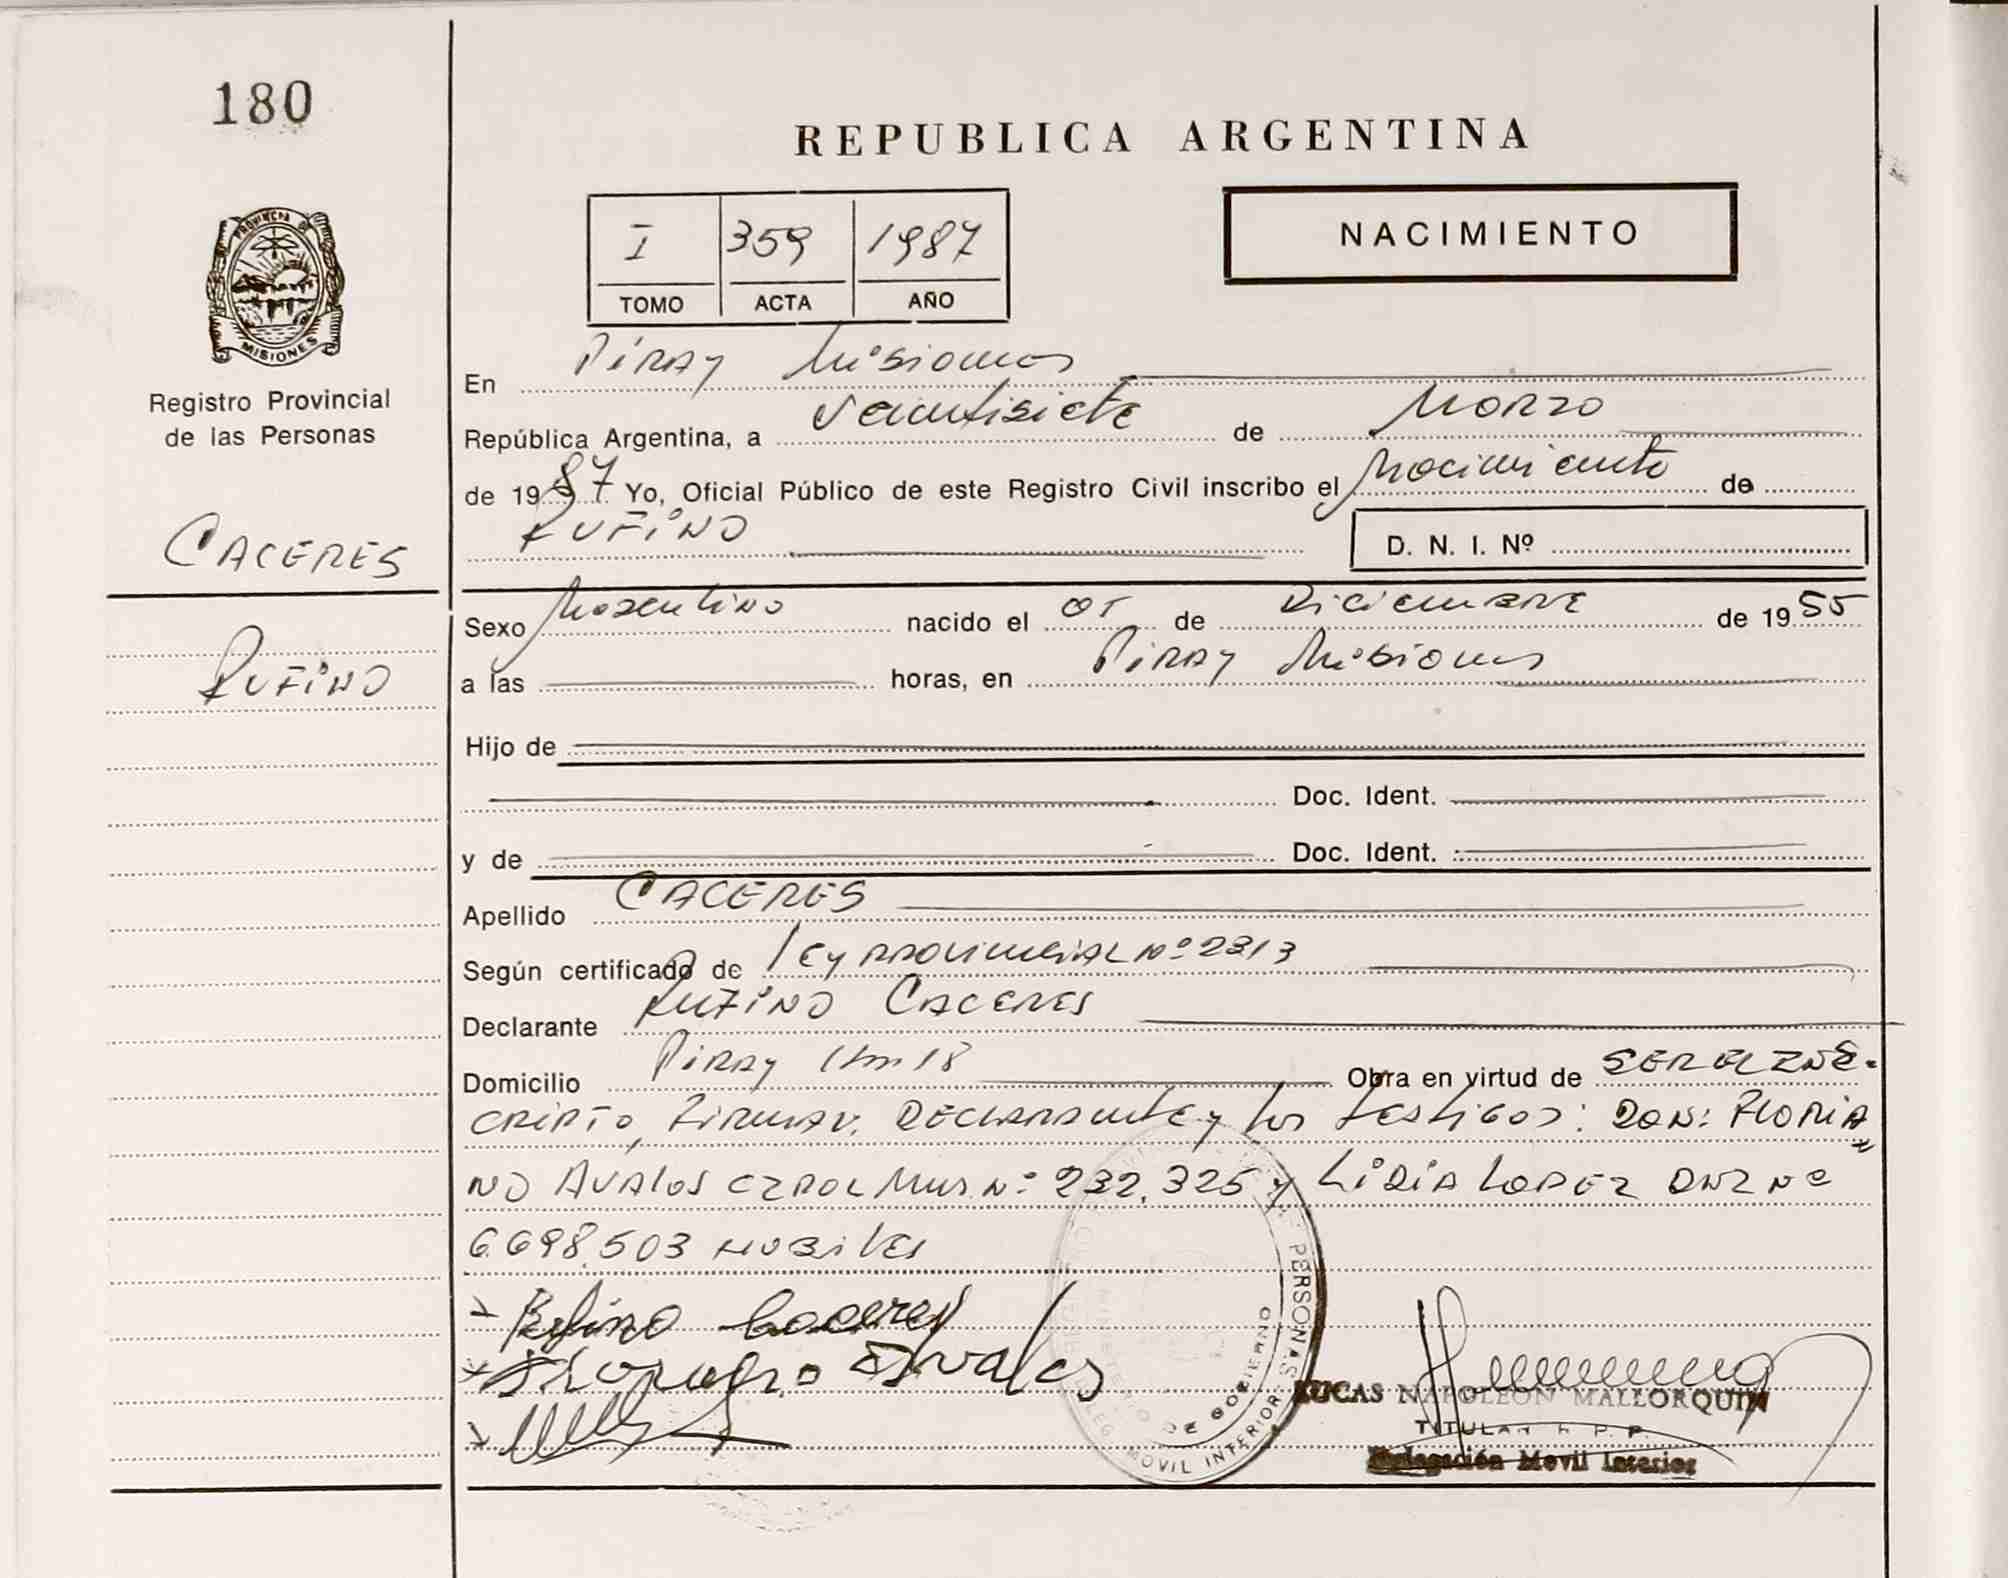 180
REPUBLICA ARGENTINA
I 359 1987
TOMO ACTA AÑO
NACIMIENTO
PROVINCIA DE
MISIONES
Registro Provincial
de las Personas
CACERES
RUFINO
En Piray Misiones
República Argentina, a veintisiete de Marzo
de 1987 Yo, Oficial Público de este Registro Civil inscribo el Nacimiento de
RUFINO D. N. I. Nº
Sexo Masculino nacido el 05 de Diciembre de 1955
a las horas, en Piray Misiones
Hijo de
Doc. Ident.
y de Doc. Ident.
Apellido CACERES
Según certificado de Ley Provincial Nº 2313
Declarante RUFINO CACERES
Domicilio Piray Km 18 Obra en virtud de SER EL INS-
CRIPTO, Firman. DECLARANTE y los testigos: DON: FLORIA
NO AVALOS Nº 232.325 y LIDIA LOPEZ DNI Nº
6.698.503 HOBILES
Rufino Caceres
Avalos
PERSONAS
MINISTERIO DE GOBIERNO
DELEG. MOVIL INTERIOR
LUCAS NAPOLEON MALLORQUIN
TITULAR R. P. P.
Delegación Movil Interior